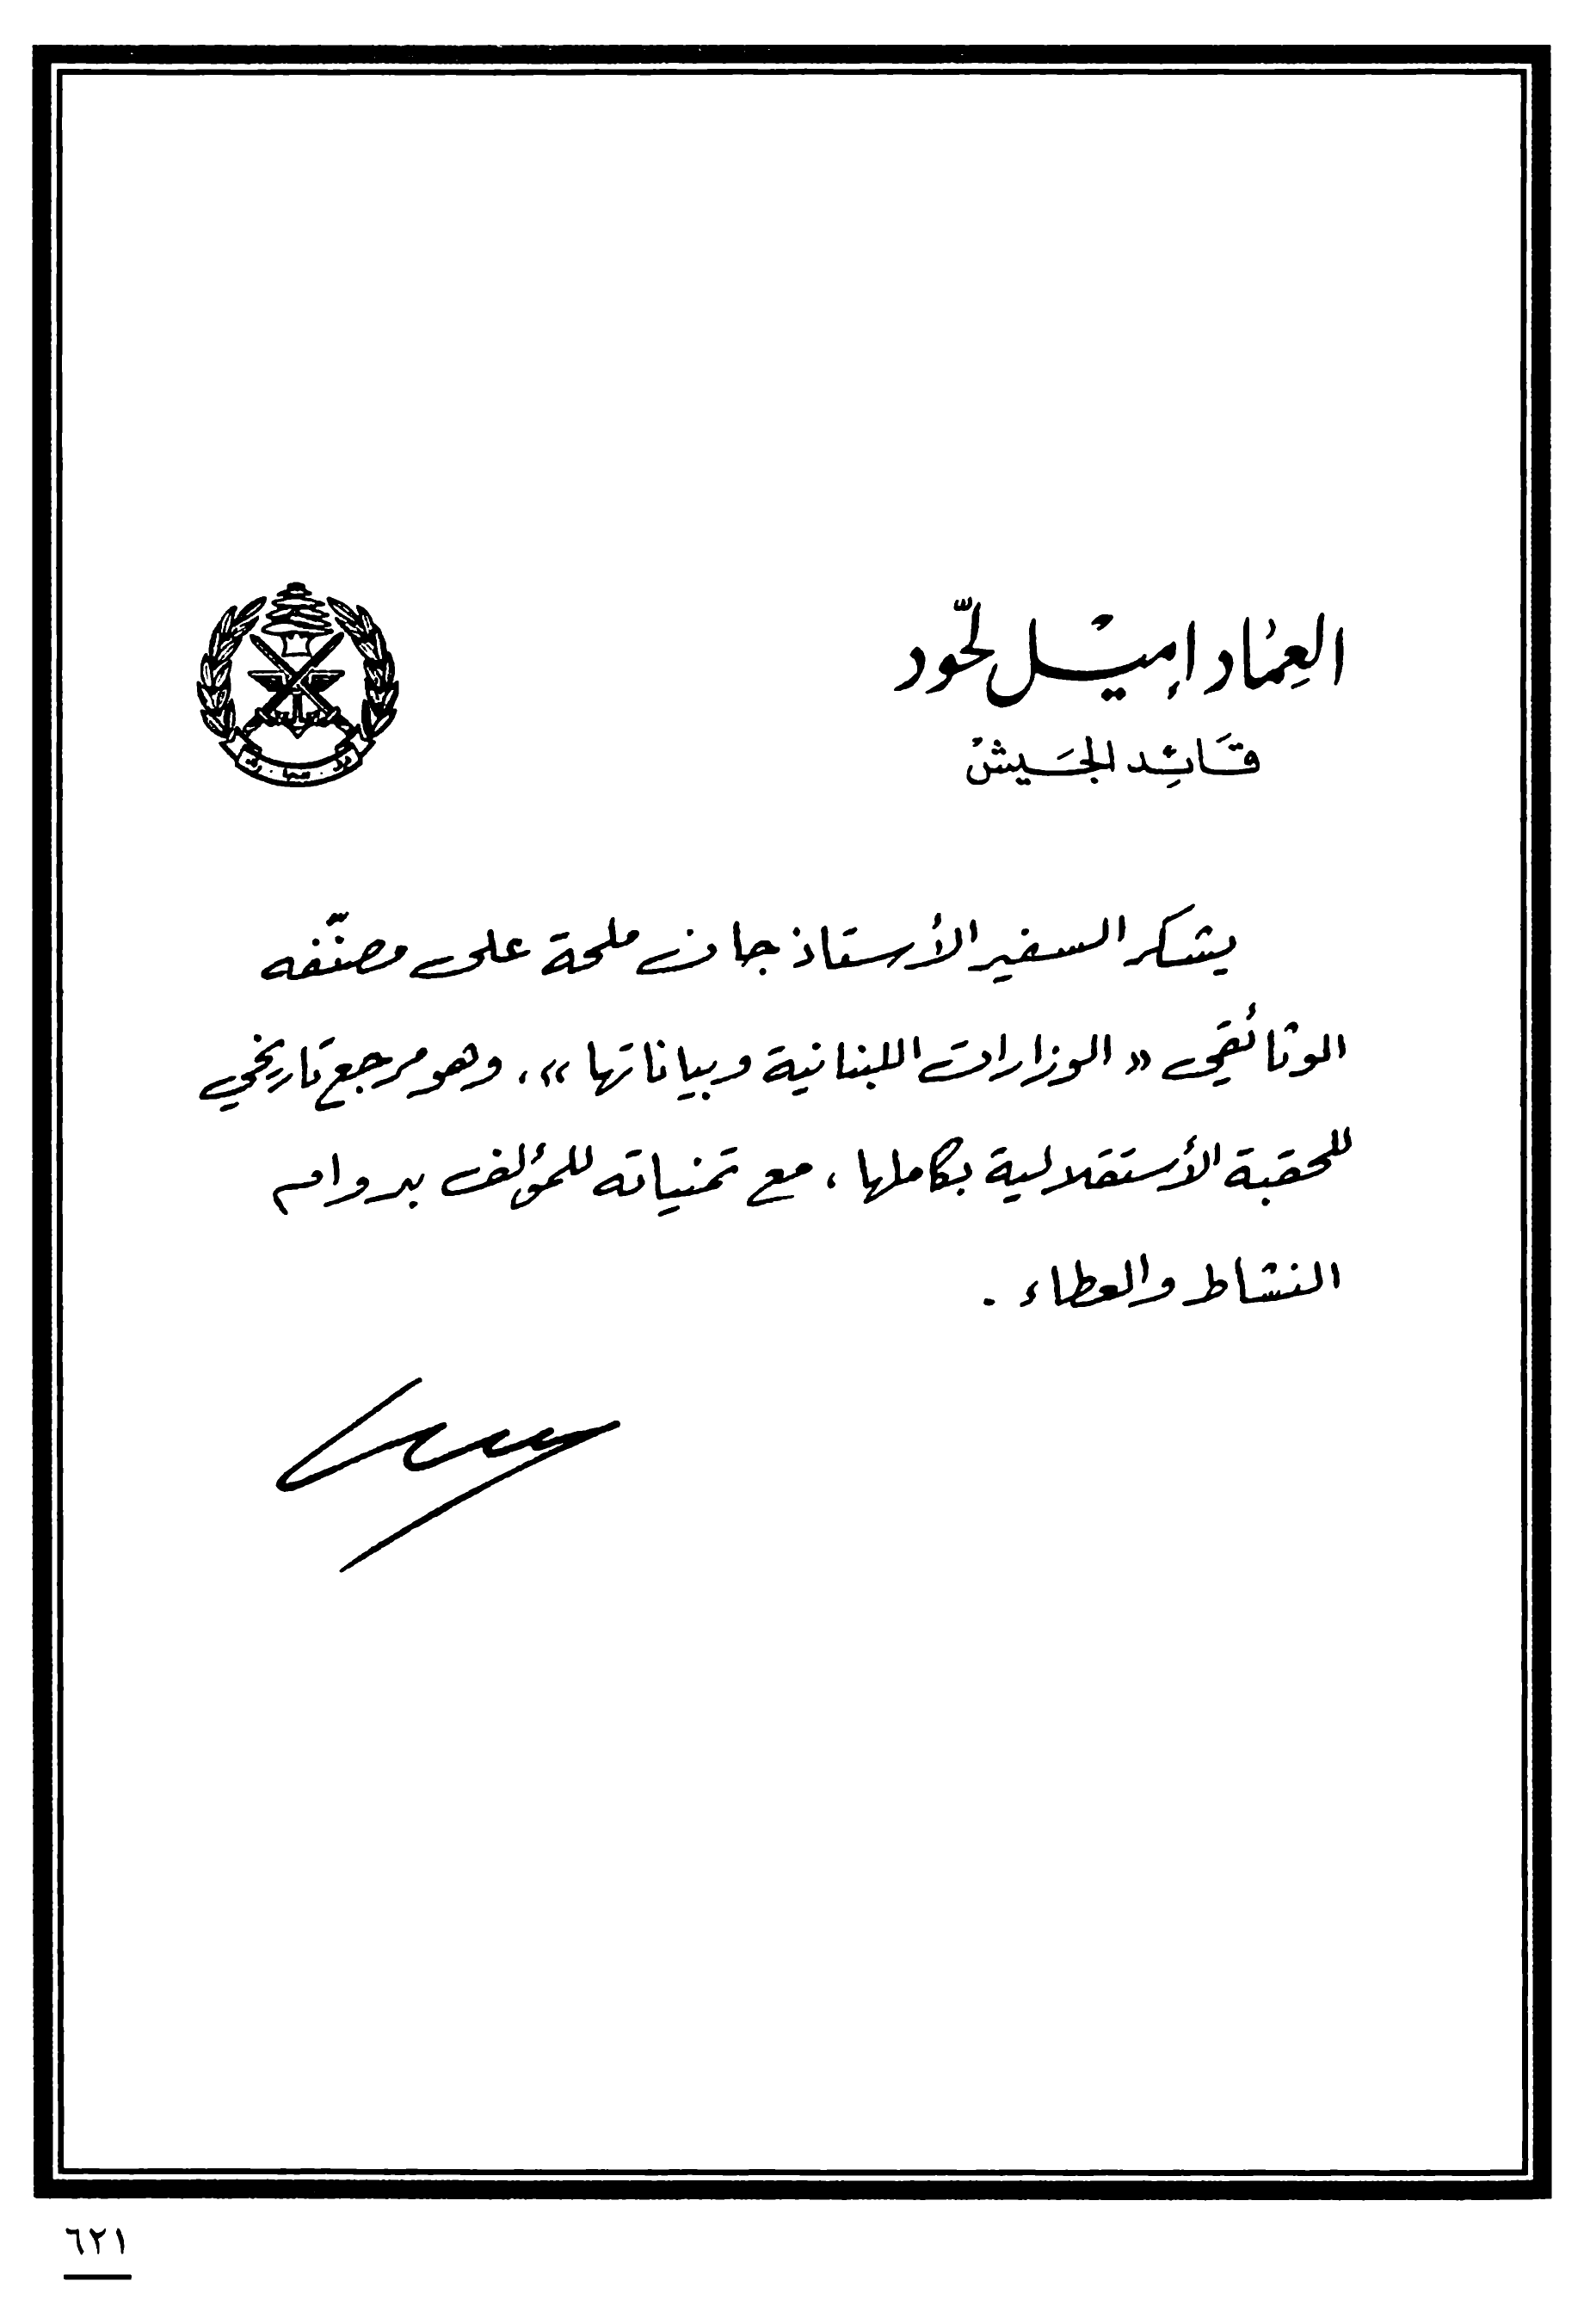 العِمَاد إميْل لحّود
قَائِد الجَيشْ
يشكر السفير الأستاذ جان ملحة على مصنّفه
الوثائقي « الوزارات اللبنانية وبياناتها »، وهو مرجع تاريخي
للحقبة الأستقلالية بكاملها، مع تمنياته للمؤلف بدوام
النشاط والعطاء .
٦٢١